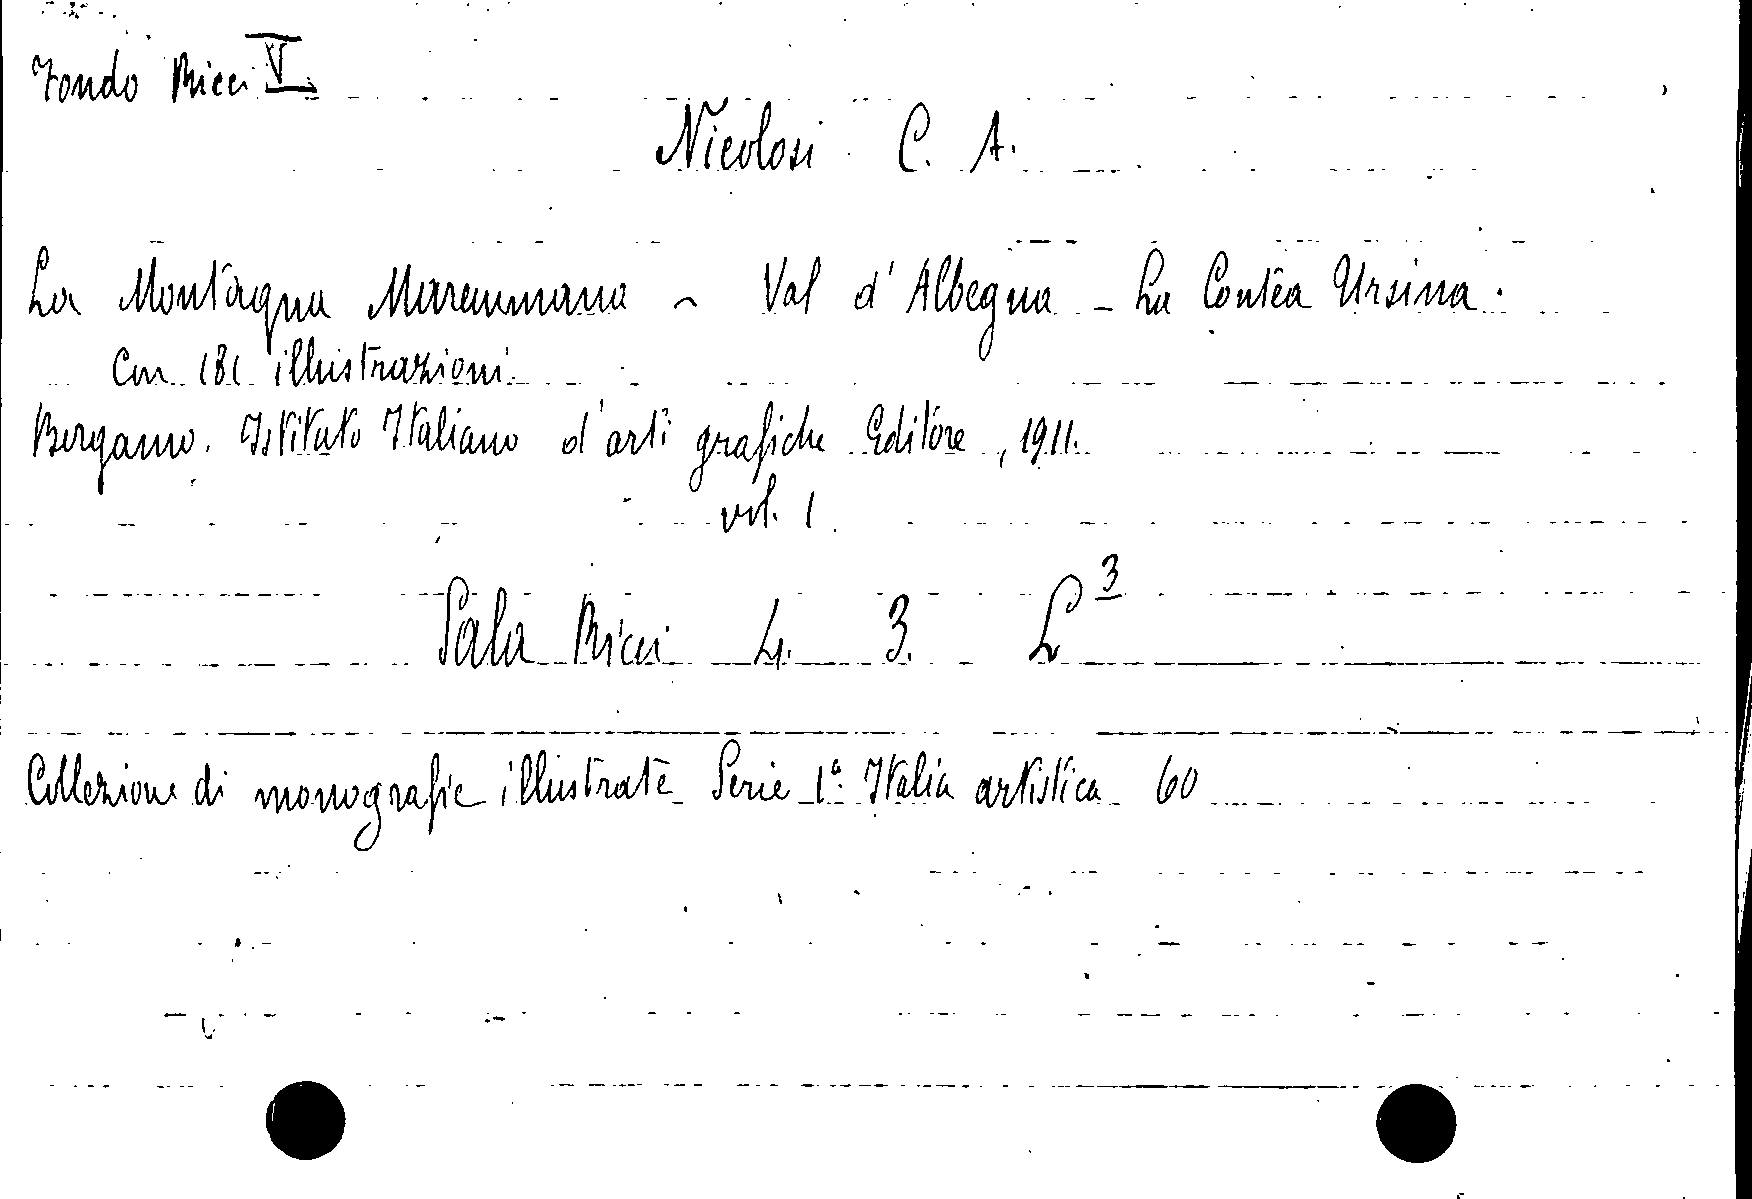 Fondo Ricci V
Nicolosi C. A.
La Montagna Maremmana - Val d'Albegna - La Contea Ursina.
Con 181 illustrazioni.
Bergamo. Istituto Italiano d'arti grafiche Editore, 1911.
vol. 1.
Sala Ricci 4. 3. L 3
Collezione di monografie illustrate Serie 1ª: Italia artistica 60